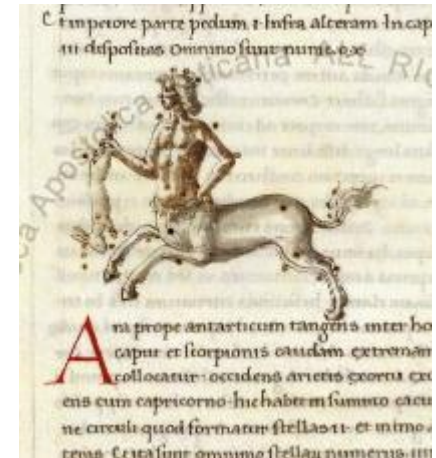 t inperiore parte pedum & infra alteram In cap
iii dispositas Omnino sunt nume. xx
Apostolica Vaticana ALL RI
Ara prope antarticum tangens inter ho
caput et scorpionis caudam extremam
collocatur occidens arietis exortu exo
ens cum capricorno hic habet in summo cacu
ne circuli quod formatur stellas ii et in imo a